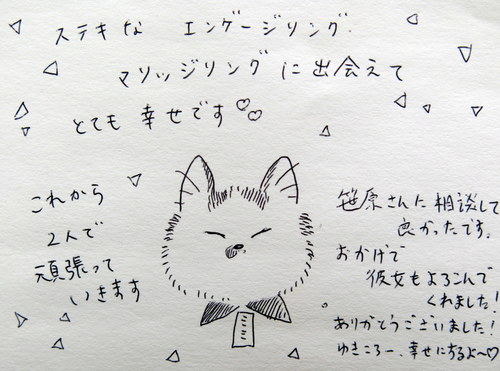 ステキな エンゲージリング.
マリッジリング に出会えて
とても 幸せです♡♡
これから
2人で
頑張って
いきます
笹原さんに 相談して
良かったです.
おかげで
彼女もよろこんで
くれました!
ありがとうございました!
ゆきころー、幸せにするよ〜♡